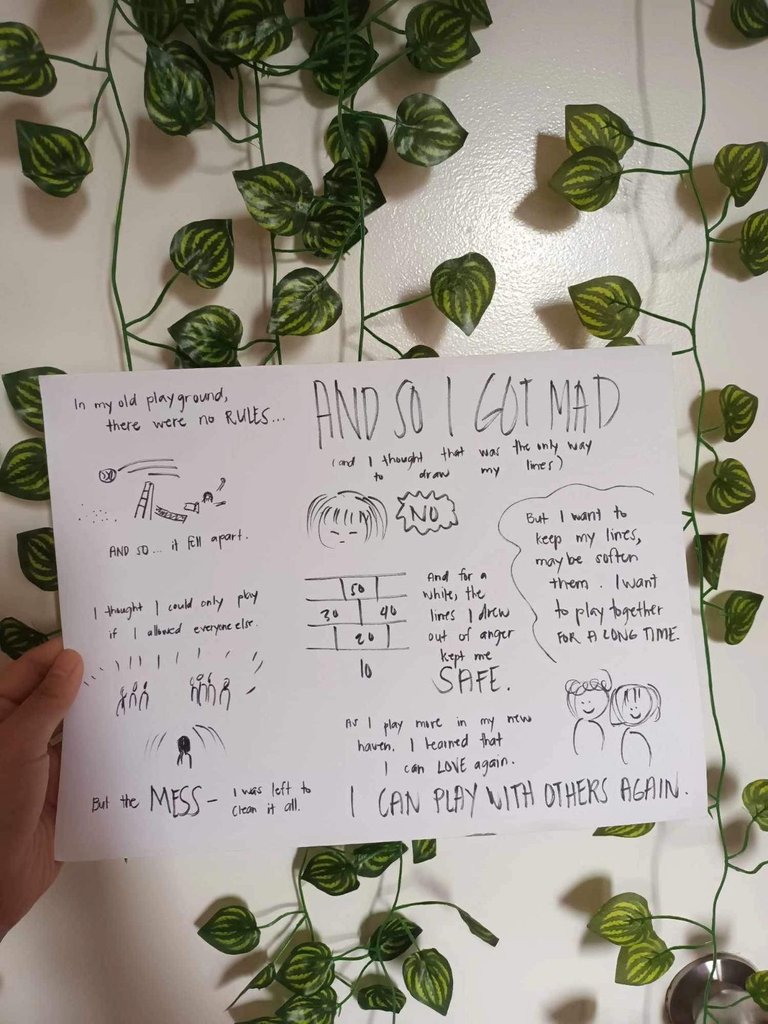 In my old playground,
there were no RULES...
AND SO... it fell apart.
I thought I could only play
if I allowed everyone else.
But the MESS - I was left to
clean it all.
AND SO I GOT MAD
(and I thought that was the only way
to draw my lines)
NO
50
30 40
20
10
And for a
while, the
lines I drew
out of anger
kept me
SAFE.
But I want to
keep my lines,
maybe soften
them. I want
to play together
FOR A LONG TIME.
As I play more in my new
haven, I learned that
I can LOVE again.
I CAN PLAY WITH OTHERS AGAIN.